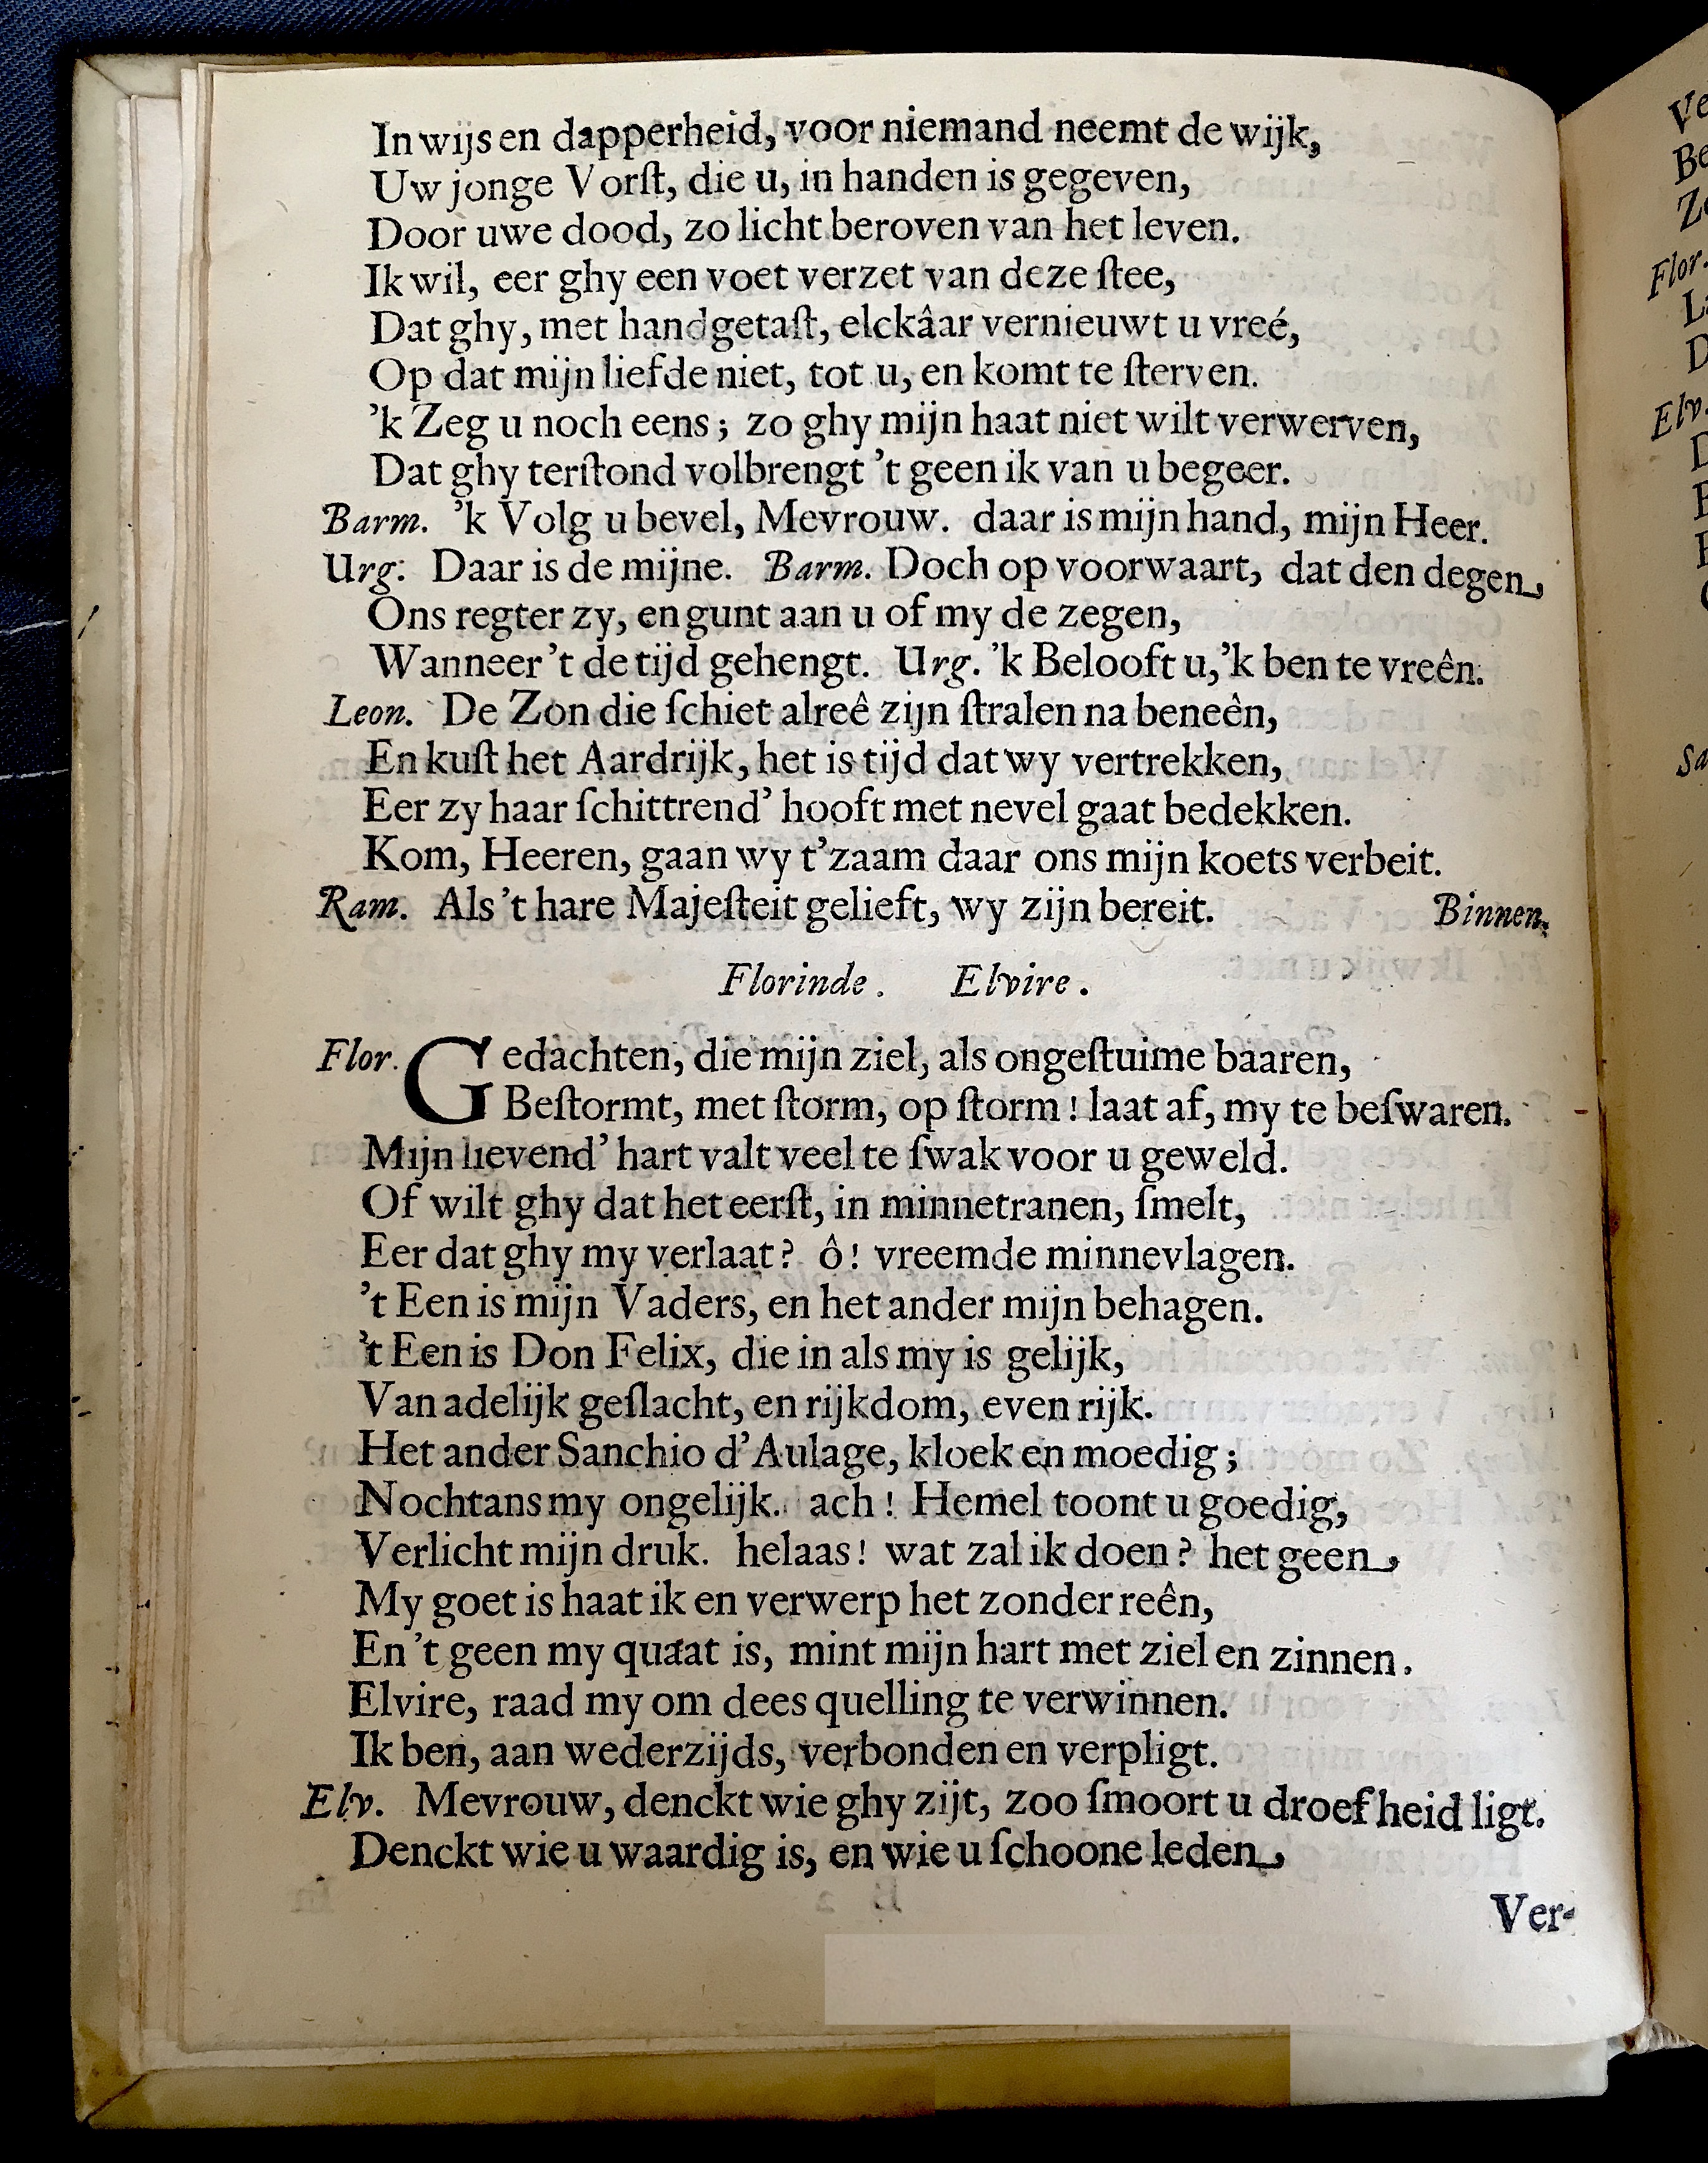 In wijs en dapperheid, voor niemand neemt de wijk,
Uw jonge Vorſt, die u, in handen is gegeven,
Door uwe dood, zo licht beroven van het leven.
Ik wil, eer ghy een voet verzet van deze ſtee,
Dat ghy, met handgetaſt, elckâar vernieuwt u vreé,
Op dat mijn liefde niet, tot u, en komt te ſterven.
'k Zeg u noch eens; zo ghy mijn haat niet wilt verwerven,
Dat ghy terſtond volbrengt 't geen ik van u begeer.
Barm. 'k Volg u bevel, Mevrouw. daar is mijn hand, mijn Heer.
Urg. Daar is de mijne. Barm. Doch op voorwaart, dat den degen
Ons regter zy, en gunt aan u of my de zegen,
Wanneer 't de tijd gehengt. Urg. 'k Belooft u, 'k ben te vreên.
Leon. De Zon die ſchiet alreê zijn ſtralen na beneên,
En kuſt het Aardrijk, het is tijd dat wy vertrekken,
Eer zy haar ſchittrend' hooft met nevel gaat bedekken.
Kom, Heeren, gaan wy t'zaam daar ons mijn koets verbeit.
Ram. Als 't hare Majeſteit gelieft, wy zijn bereit. Binnen.
Florinde. Elvire.
Flor. Gedachten, die mijn ziel, als ongeſtuime baaren,
Beſtormt, met ſtorm, op ſtorm! laat af, my te beſwaren.
Mijn lievend' hart valt veel te ſwak voor u geweld.
Of wilt ghy dat het eerſt, in minnetranen, ſmelt,
Eer dat ghy my verlaat? ô! vreemde minnevlagen.
't Een is mijn Vaders, en het ander mijn behagen.
't Een is Don Felix, die in als my is gelijk,
Van adelijk geſlacht, en rijkdom, even rijk.
Het ander Sanchio d'Aulage, kloek en moedig;
Nochtans my ongelijk. ach! Hemel toont u goedig,
Verlicht mijn druk. helaas! wat zal ik doen? het geen
My goet is haat ik en verwerp het zonder reên,
En 't geen my quaat is, mint mijn hart met ziel en zinnen.
Elvire, raad my om dees quelling te verwinnen.
Ik ben, aan wederzijds, verbonden en verpligt.
Elv. Mevrouw, denckt wie ghy zijt, zoo ſmoort u droefheid ligt.
Denckt wie u waardig is, en wie u ſchoone leden
Ver-
Ve
Be
Zo
Flor.
L
D
Elv.
D
Sa